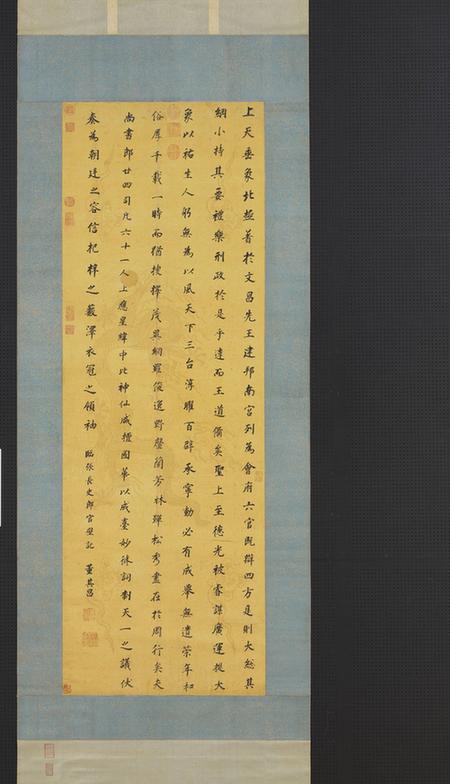 上天垂象北極著於文昌先王建邦南宮列為會府六官既辯四方是則大總其
綱小持其要禮樂刑政於是乎達而王道備矣聖上至德光被睿謀廣運提大
象以祐生人躬無為以風天下三台淳曜百辟承寧動必有成舉無遺策年和
俗厚千載一時而猶搜擇茂異網羅俊逸野罄蘭芳林殫松秀盡在於周行矣夫
尚書郎廿四司凡六十一人上應星緯中比神仙咸擅國華以成臺妙休詞對天一之議伏
奏為朝廷之容信杞梓之藪澤衣冠之領袖
臨張長史郎官壁記 董其昌